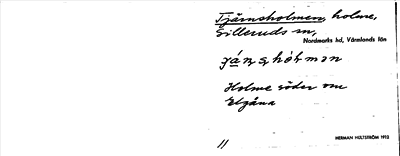 Tjärnsholmen, holme,
Silleruds sn,
Nordmarks hd, Värmlands län
Holme söder om
Elgåna
HERMAN HULTSTRÖM 1913
11